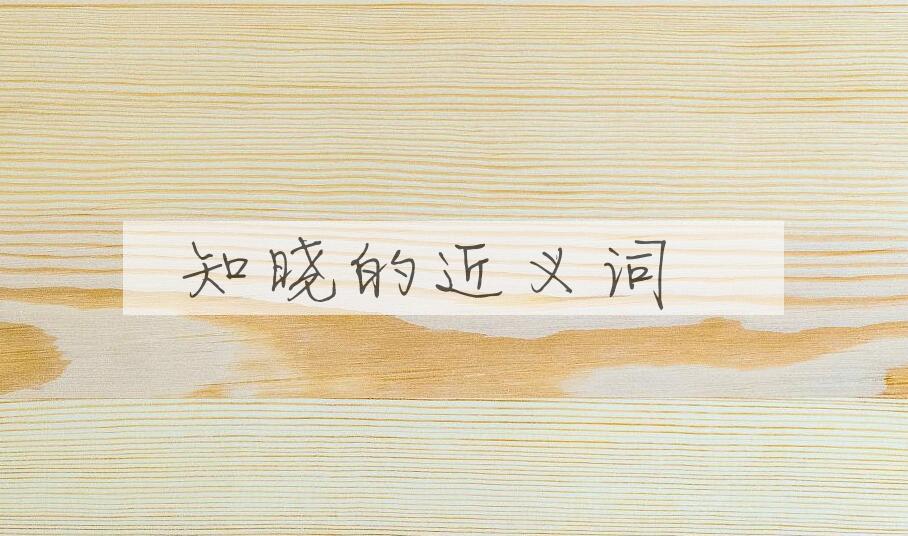 知晓的近义词